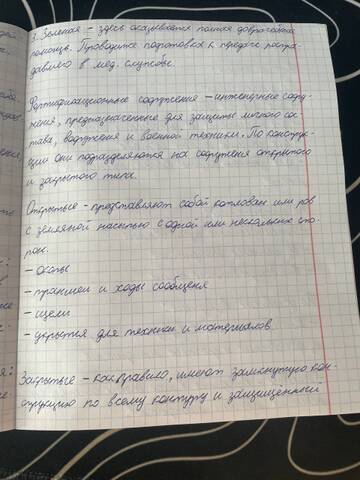 3. Зеленая – здесь оказывается полная доврачебная
помощь. Проводится подготовка к передаче постра-
давшего в мед. службе.
Фортификационные сооружения – инженерные соору-
жения, предназначенные для защиты личного сос-
тава, вооружения и военной техники. По конструк-
ции они подразделяются на сооружения открытого
и закрытого типа.
Открытые – представляют собой котлован или ров
с земляной насыпью с одной или нескольких сто-
рон.
– окопы
– траншеи и ходы сообщения
– щели
– укрытия для техники и материалов
Закрытые – как правило, имеют замкнутую кон-
струкцию по всему контуру и защищённый